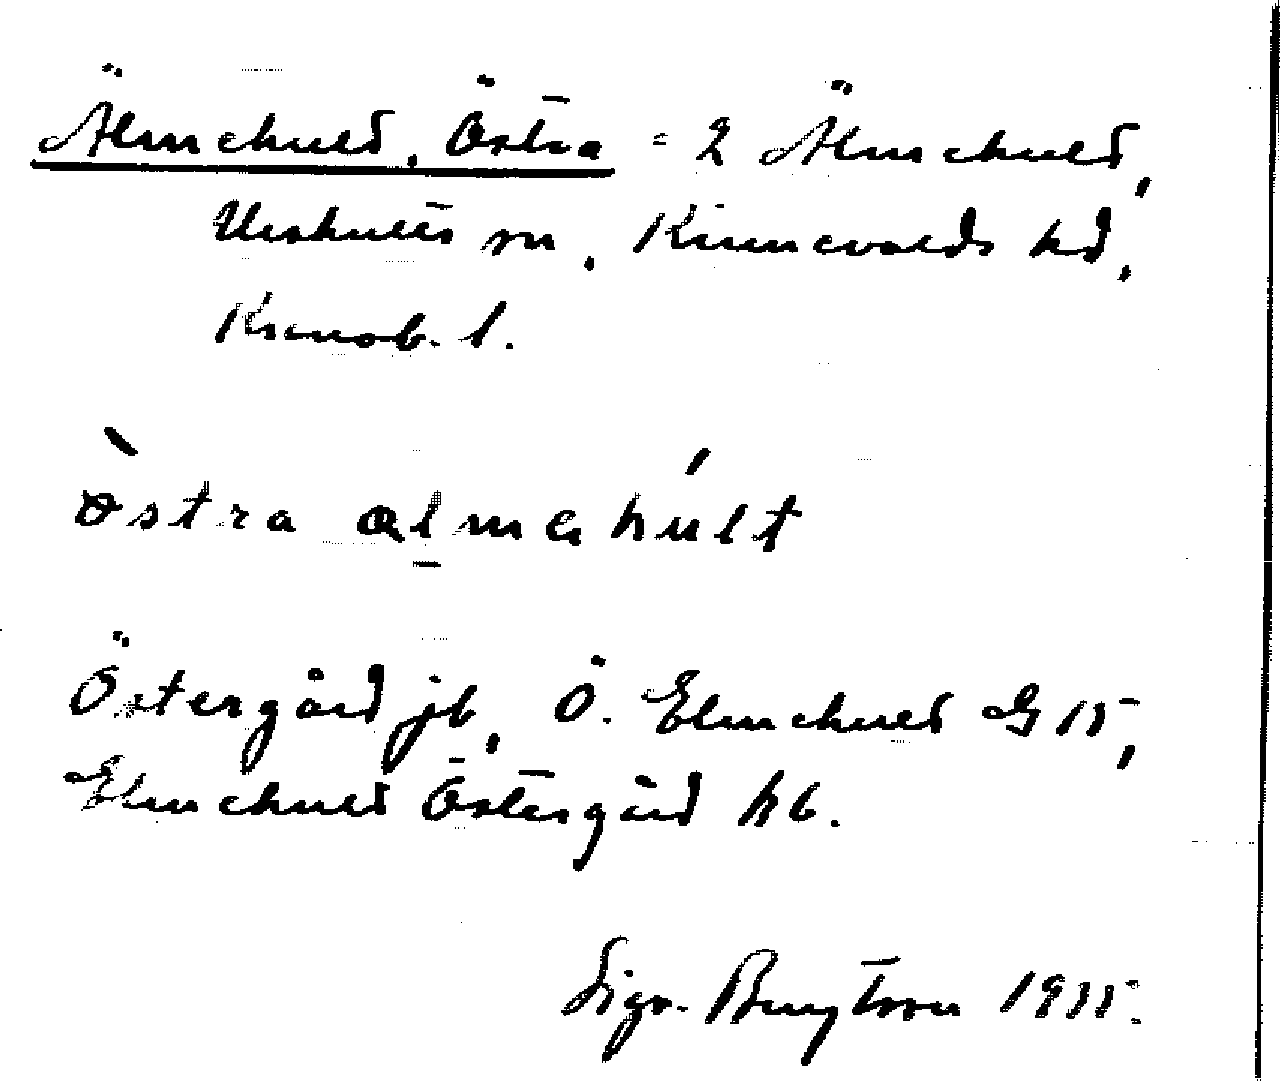 Älmehult, Östra = 2 Älmehult,
Urshults sn, Kinnevalds hd,
Kronob. l.
òstra alma húlt
Östergård jb, Ö. Elmehult G 15,
Elmehult Östergård hb.
Sign. Bengtsson 1935.